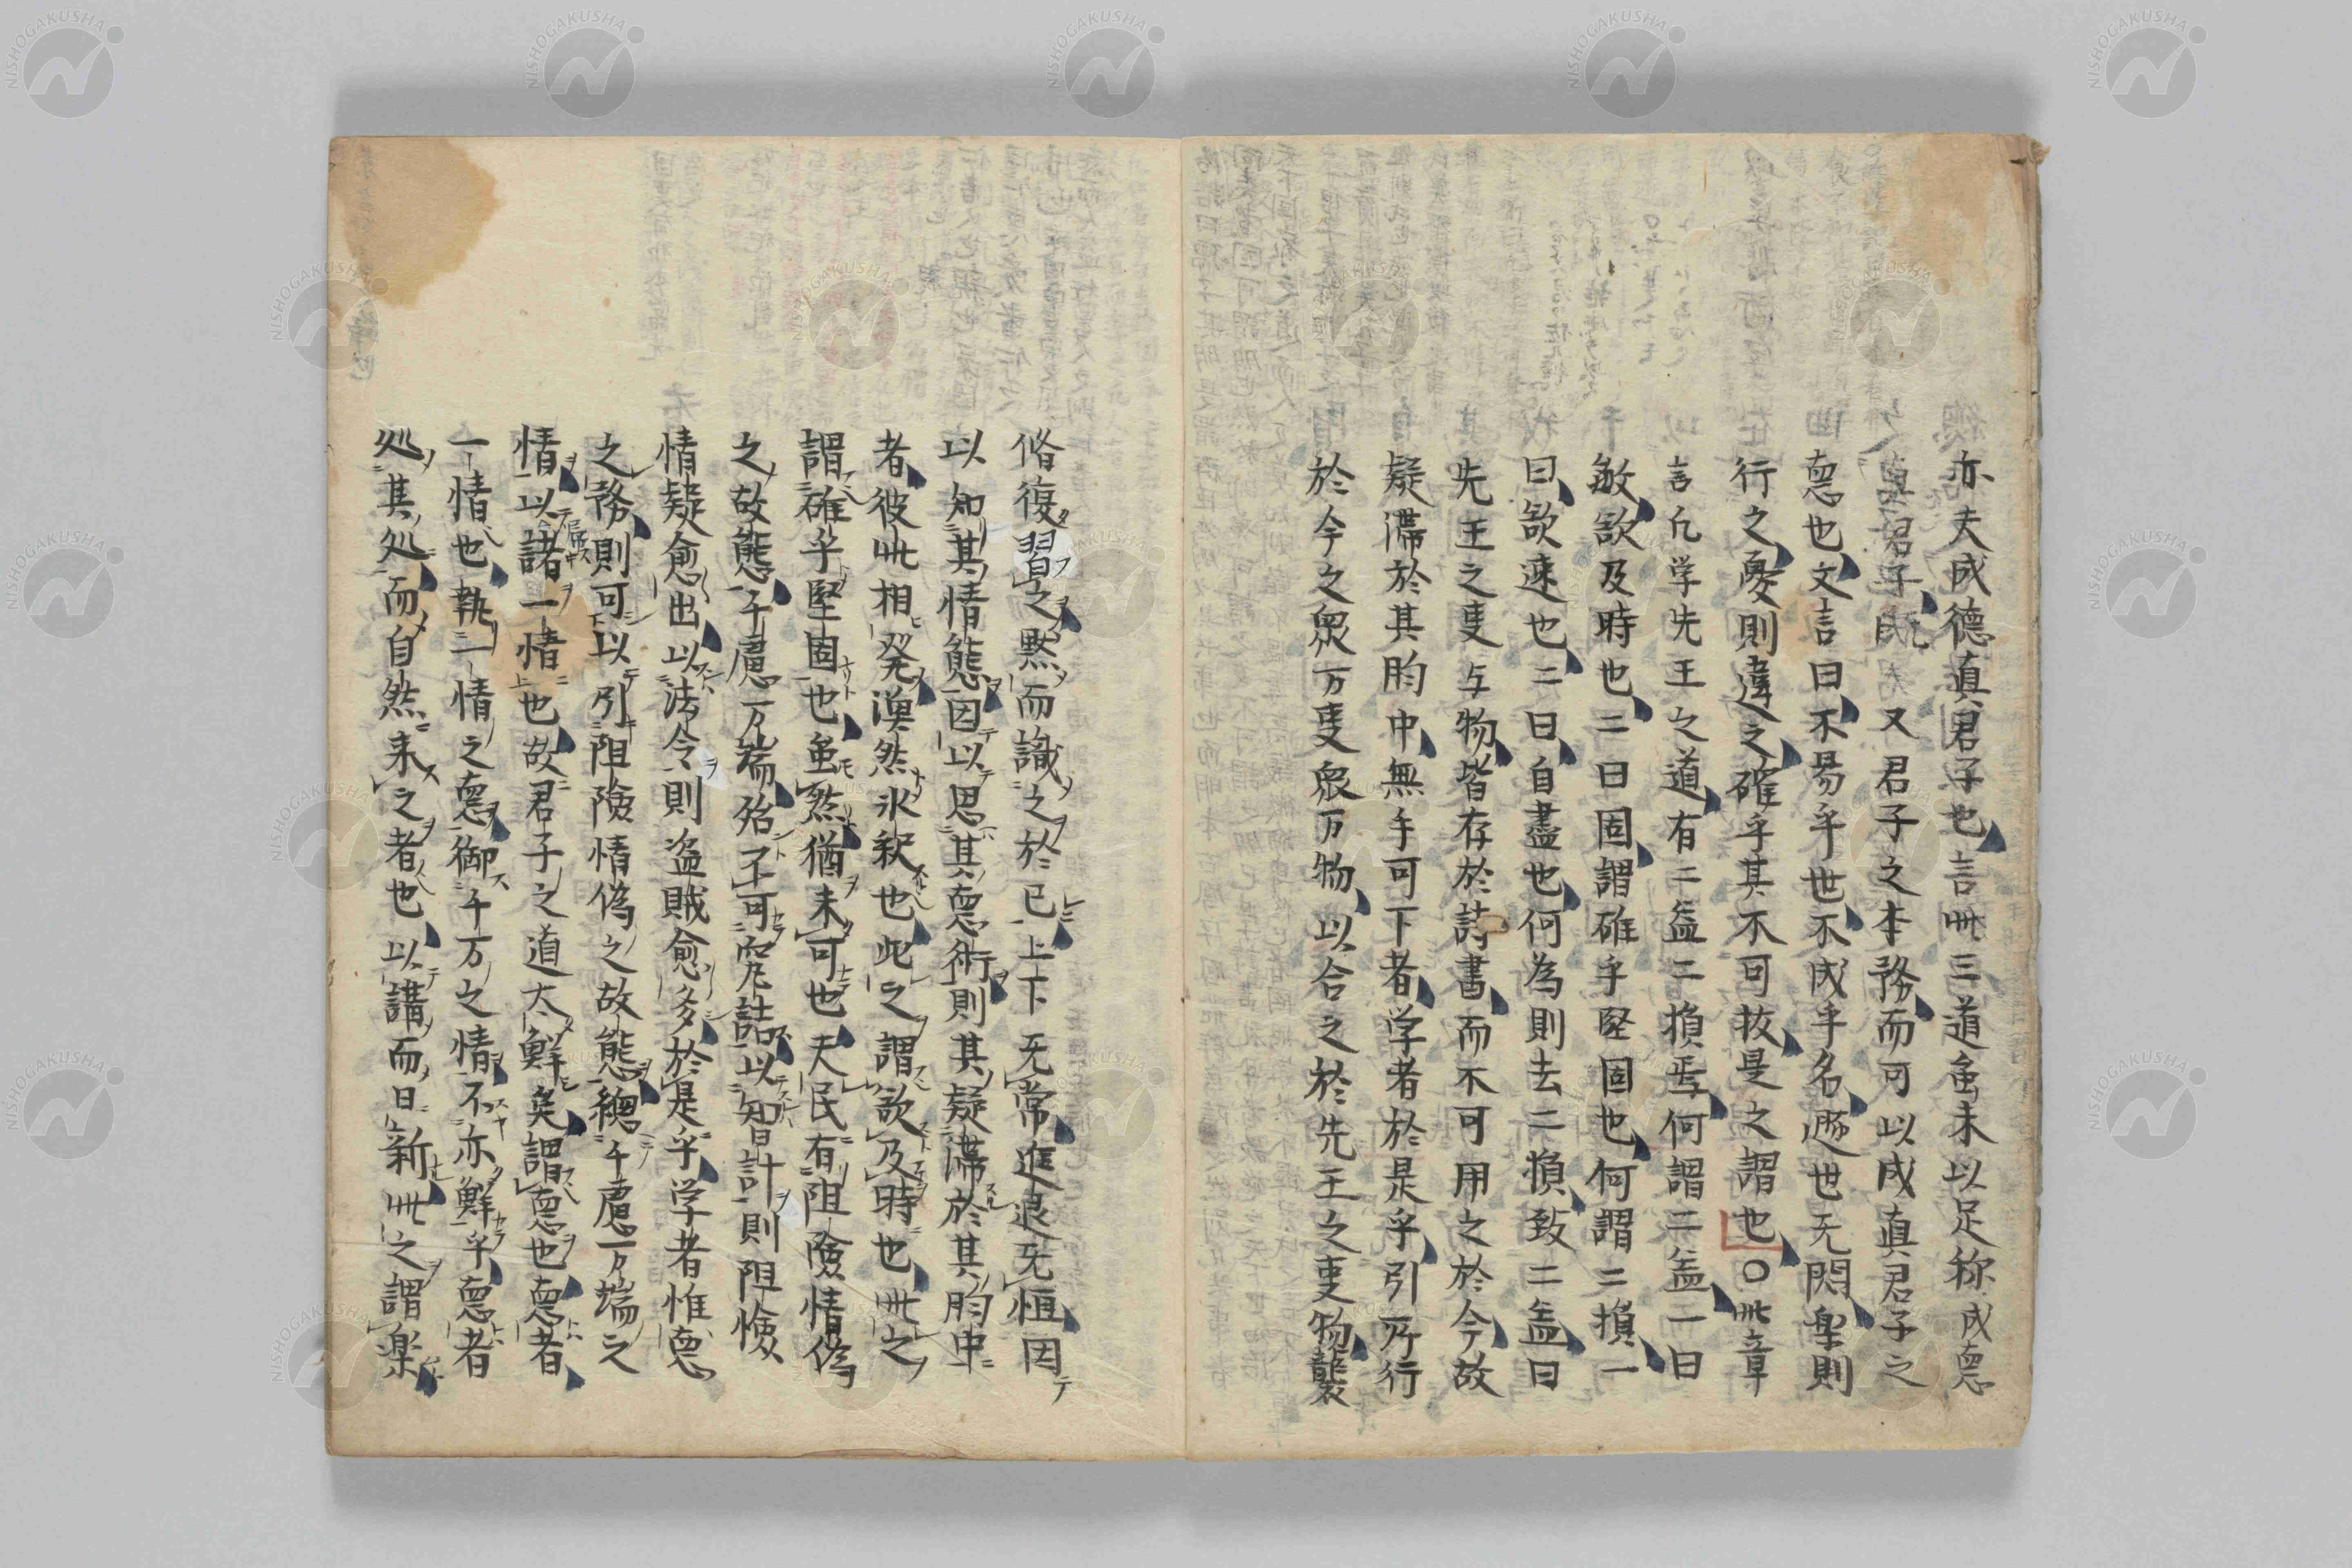 亦夫成徳真君子也言此三道虽未以足称成悳
真君子又君子之本務而可以成真君子之
悳也文言曰不易乎世不成乎名遯世无悶楽則
行之憂則違之確乎其不可抜是之謂也〇此章
言凡学先王之道有二益二損焉何謂二益一曰
敏欲及時也二曰固謂確乎堅固也何謂二損一
曰欲速也二曰自盡也何為則去二損致二益曰
先王之事与物皆存於詩書而不可用之於今故
疑滞於其胸中無乎可下者学者於是乎引所行
於今之衆万事衆万物以合之於先王之事物襲
脩復習之黙而識之於已上下无常進退无恒因
以知其情態因以思其悳術則其疑滞於其胸中
者彼此相発渙然氷釈也此之謂欲及時也此之
謂確乎堅固也虽然猶未可也夫民有阻険情偽
之故態千慮万端殆不可究詰以智計則阻険
情疑愈出以法令則盗賊愈多於是乎学者惟悳
之務則可以引阻険情偽之故態総千慮万端之
情以諸一情也故君子之道太鮮矣謂悳也悳者
一情也執一情之悳御千万之情不亦鮮乎悳者
処其処而自然来之者也以講而日新此之謂楽
NISHOGAKUSHA